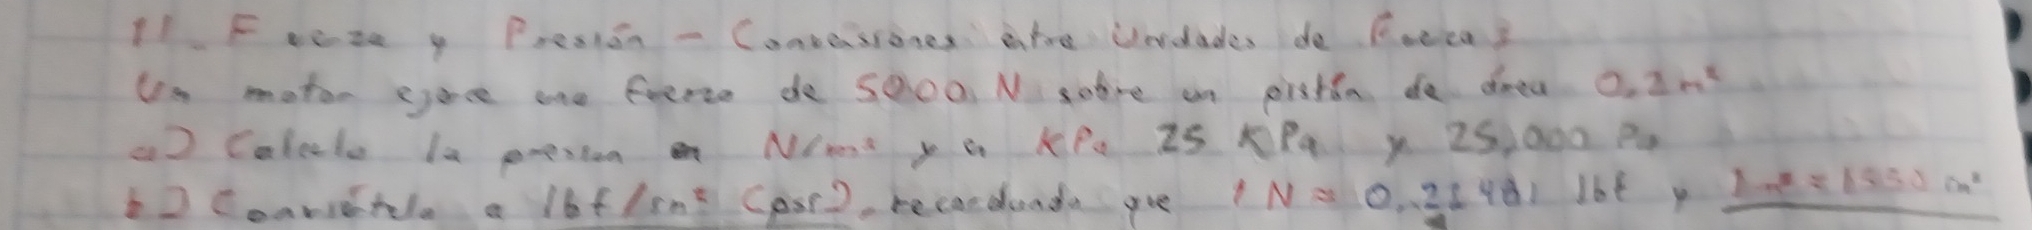 11. Fuerza y Presión - Conversiones entre Unidades de Fuerza:
Un motor ejerce una fuerza de 5000 N sobre un pistón de área 0.2 m²
a) Calcula la presión en N/m² y en KPa 25 KPa y 25,000 Pa
b) Conviértela a lbf/in² (psi), recordando que 1 N ≈ 0.22481 lbf y 1 m² = 1550 in²